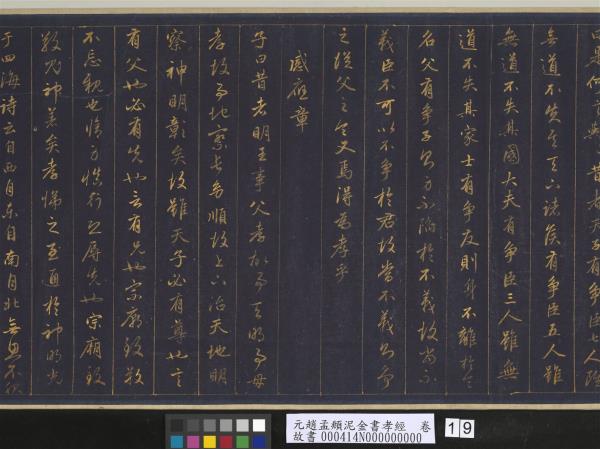 曰是何言與昔者天子有爭臣七人雖
無道不失天下諸侯有爭臣五人雖
無道不失其國大夫有爭臣三人雖無
道不失其家士有爭友則身不離於令
名父有爭子則身不陷於不義故當不
義臣不可以不爭於君故當不義則爭
之從父之令又焉得為孝乎
感應章
子曰昔者明王事父孝故事天明事母
孝故事地察長幼順故上下治天地明
察神明彰矣故雖天子必有尊也言
有父也必有先也言有兄也宗廟致敬
不忘親也脩身慎行恐辱先也宗廟致
敬鬼神著矣孝悌之至通於神明光
于四海詩云自西自東自南自北無思不服
元趙孟頫泥金書孝經 卷
故書000414N000000000
19